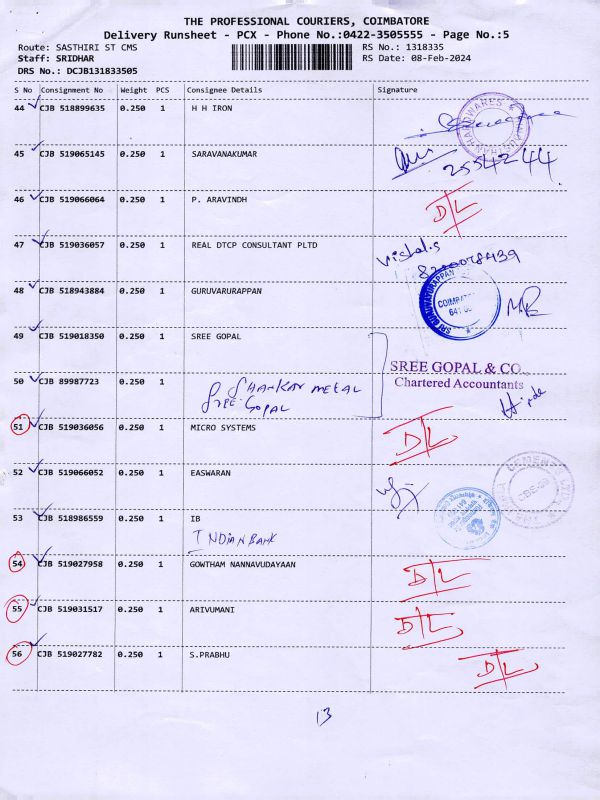 THE PROFESSIONAL COURIERS, COIMBATORE
Delivery Runsheet - PCX - Phone No.:0422-3505555 - Page No.:5
Route: SASTHIRI ST CMS RS No.: 1318335
Staff: SRIDHAR RS Date: 08-Feb-2024
DRS No.: DCJB131833505
S No Consignment No Weight PCS Consignee Details Signature
44 CJB 518899635 0.250 1 H H IRON
45 CJB 519065145 0.250 1 SARAVANAKUMAR
2554244
46 CJB 519066064 0.250 1 P. ARAVINDH D/L
47 CJB 519036057 0.250 1 REAL DTCP CONSULTANT PLTD
48 CJB 518943884 0.250 1 GURUVARURAPPAN
49 CJB 519018350 0.250 1 SREE GOPAL
SREE GOPAL & CO.
Chartered Accountants
50 CJB 89987723 0.250 1 SHANKAR METAL
SREE GOPAL
51 CJB 519036056 0.250 1 MICRO SYSTEMS D/L
52 CJB 519066052 0.250 1 EASWARAN
53 CJB 518986559 0.250 1 IB
INDIAN BANK
54 CJB 519027958 0.250 1 GOWTHAM NANNAVUDAYAAN D/L
55 CJB 519031517 0.250 1 ARIVUMANI D/L
56 CJB 519027782 0.250 1 S.PRABHU D/L
13